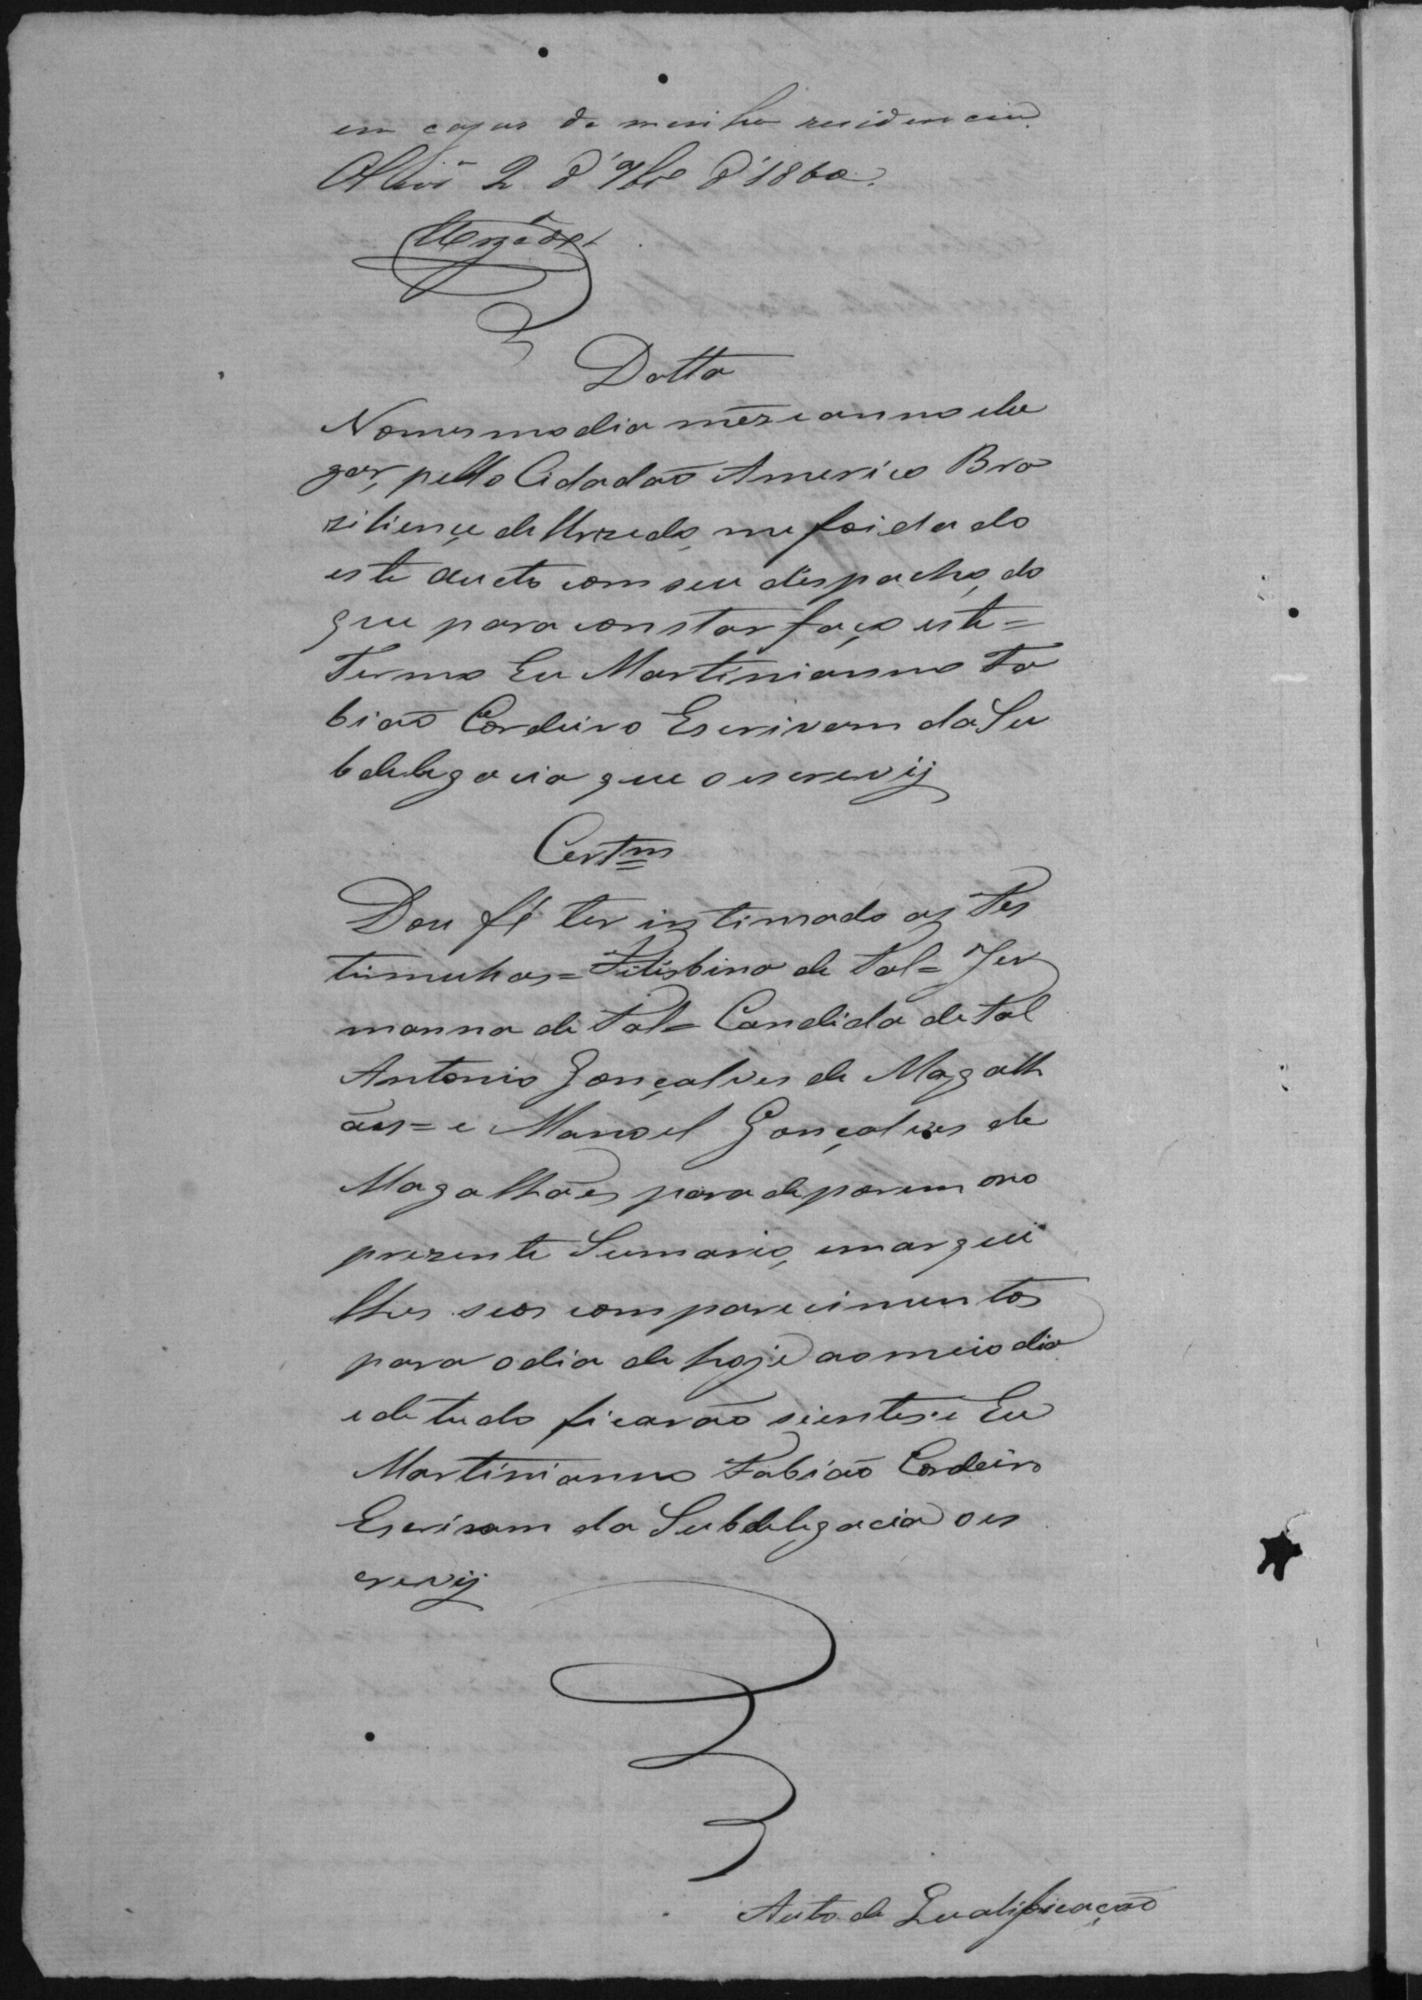 em cazas de minha residencia
2 d'9br.e d'1860.
Urzedo
Datta
No mesmo dia mêz e anno e lu
gar, pello Cidadão Americo Bra
ziliençe de Urzedo, me foi dado
este aucto com seu dispacho, do
que para constar faço este =
Termo Eu Martinianno Fa
bião Cordeiro Escrivam da Su
bdelegacia que o escrevij
Certm
Dou fé ter intimado as Tes
timunhas = Felisbina de Tal = Jer
manna de Tal = Candida de tal
Antonio Gonçalves de Magalh
ães = e Manoel Gonçalves de
Magalhães para deporem no
prezente Sumario, e marquei
lhes seos comparecimentos
para o dia de hoje ao meio dia
e de tudo ficarão sientes e Eu
Martinianno Fabião Cordeiro
Escrivam da Subdelegacia o es
crevij
Auto de Qualificação